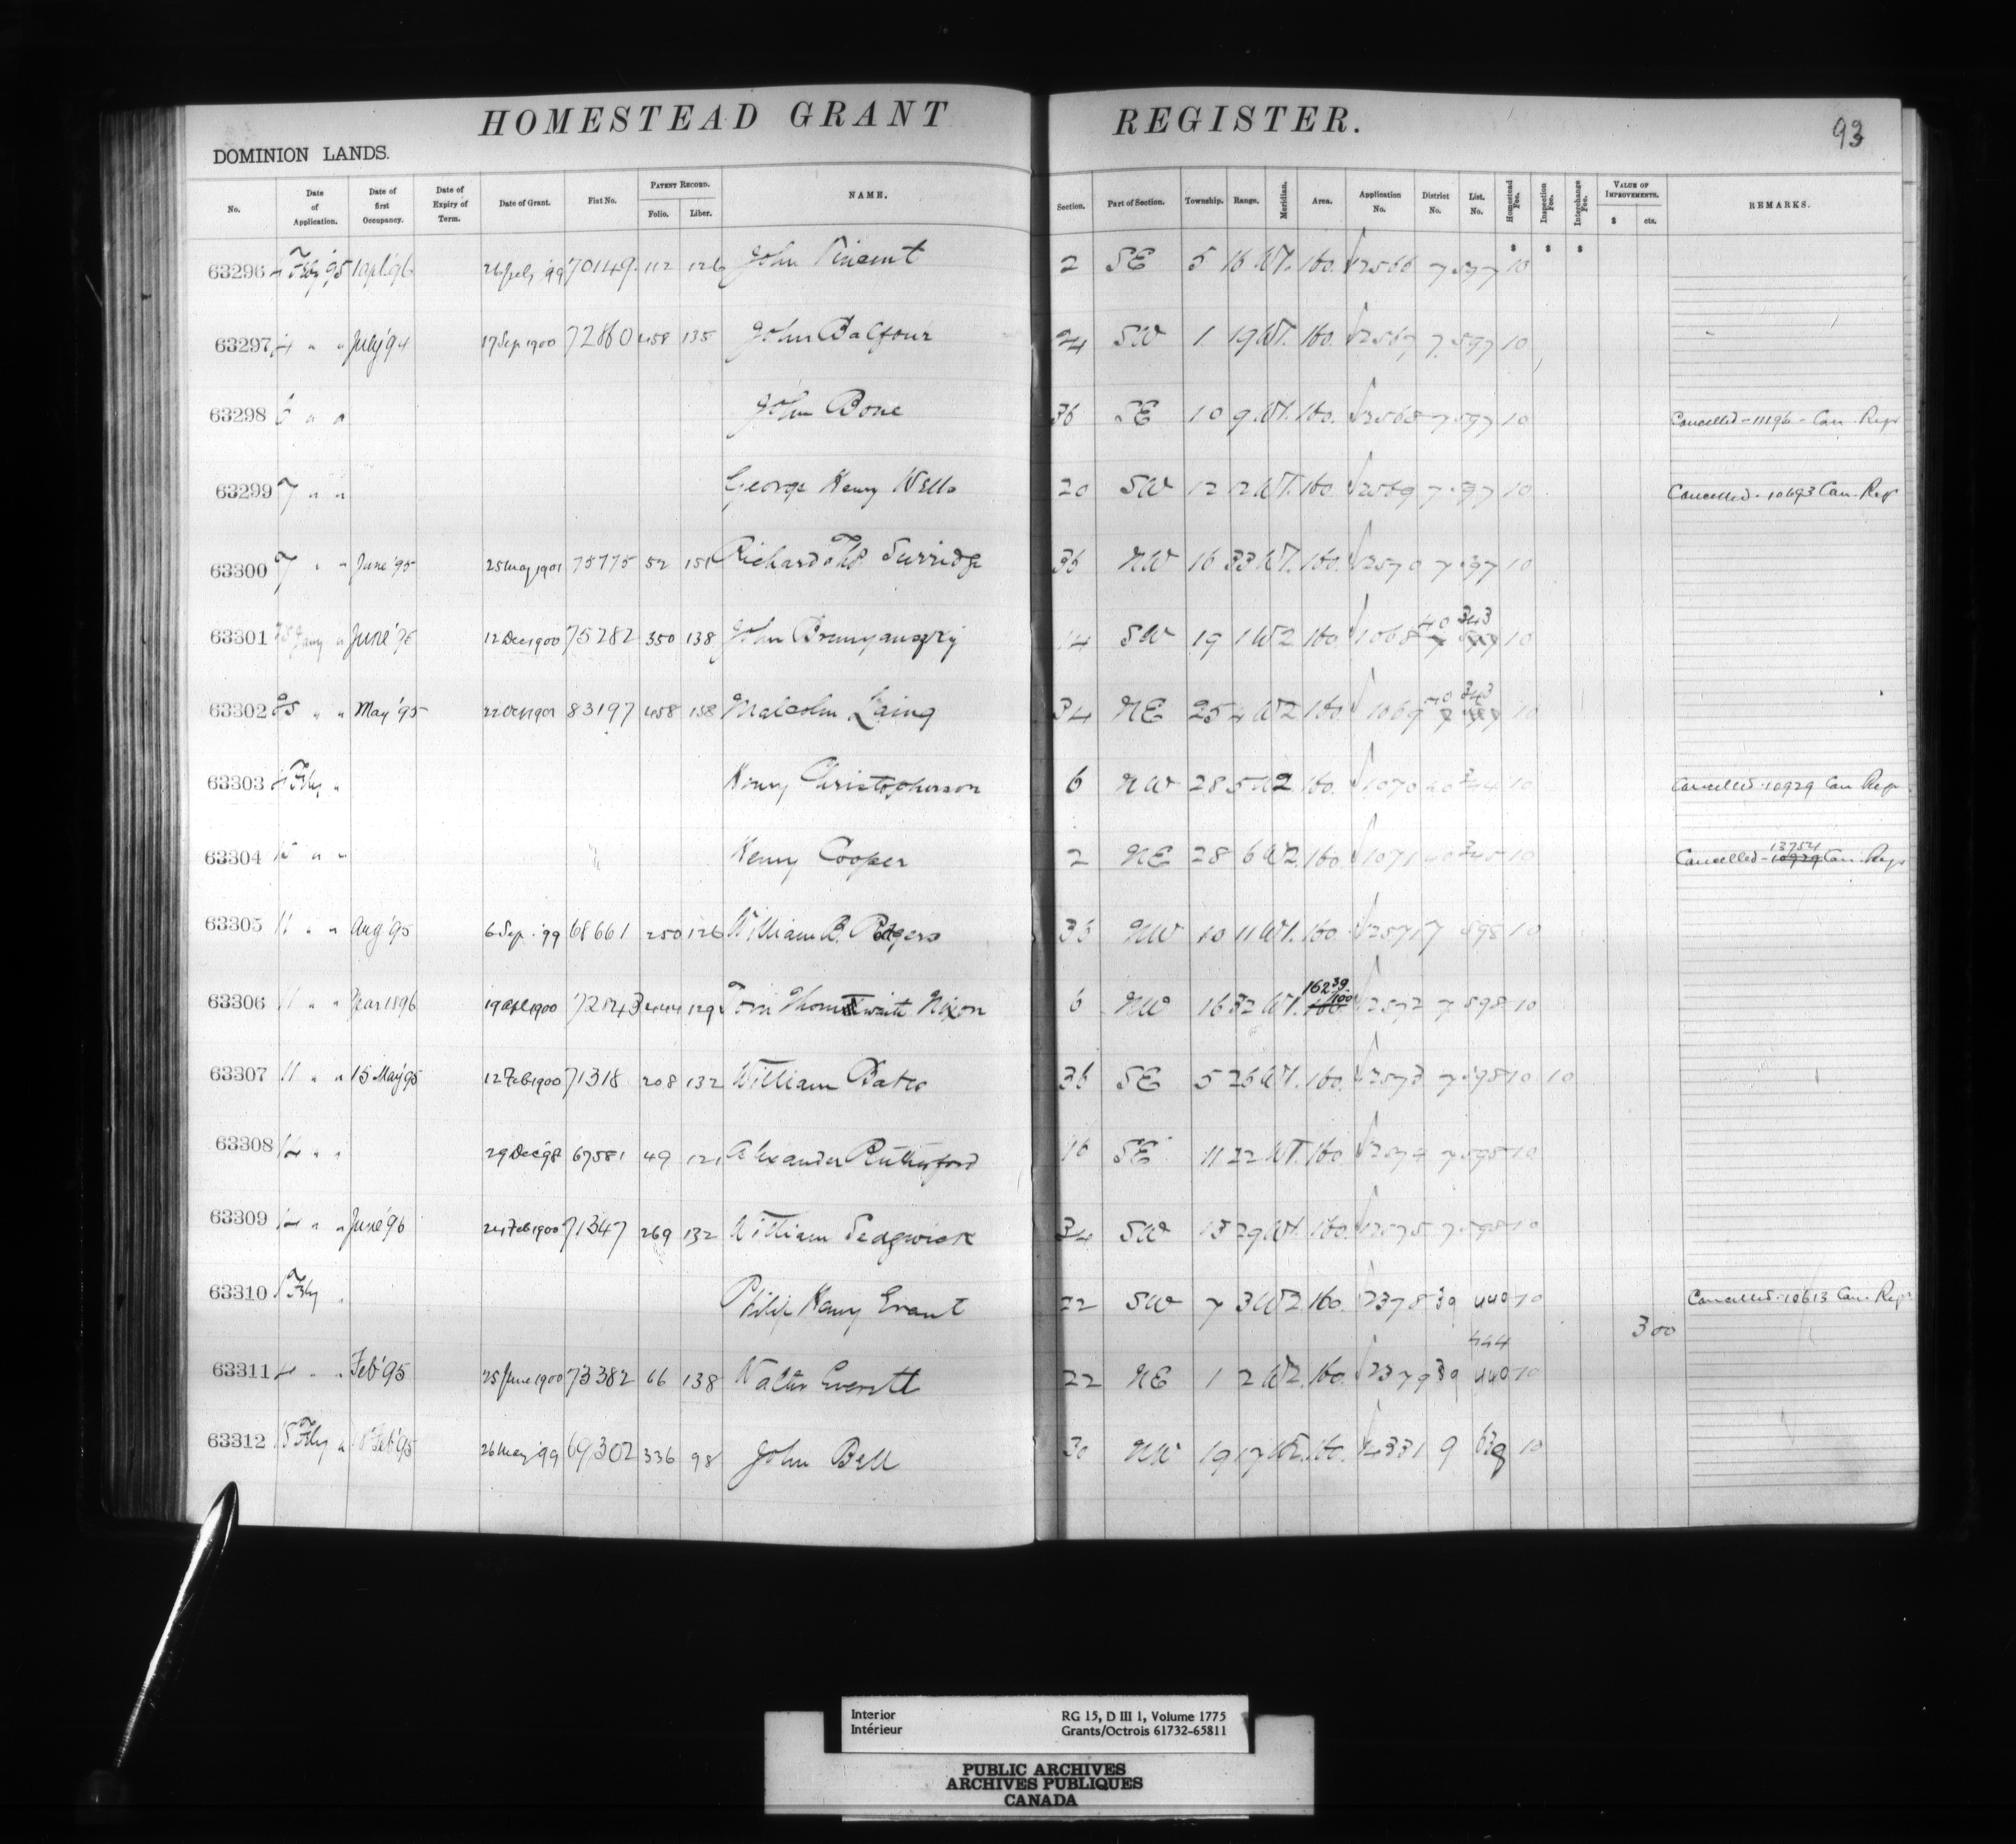 HOMESTEAD GRANT REGISTER.
93
DOMINION LANDS.
No. Date of Application. Date of first Occupancy. Date of Expiry of Term. Date of Grant. Fiat No. PATENT RECORD. Folio. Liber. NAME. Section. Part of Section. Township. Range. Meridian. Area. Application No. District No. List. No. Homestead Fee. Inspection Fee. Interchange Fee. VALUE OF IMPROVEMENTS. $ cts. REMARKS.
$ $ $
63296 4 Feby '95 1 apl. '96 '99 70149 112 126 John Vincent 2 SE 5 16 W1. 160. 2566 7 597 10
63297 4 " " July '94 17 Sep 1900 72860 458 135 John Balfour 24 SW 1 19 W1. 160. 2567 7 597 10
63298 6 " " John Bone 36 SE 10 9 W1. 160. 2568 7 597 10 Cancelled - 11196 - Can. Regr
63299 7 " " George Henry Wells 20 SW 12 12 W1. 160. 2569 7 597 10 Cancelled - 10693 Can. Regr
63300 7 " " June '95 25 May 1901 75775 52 151 Richard Surridge 36 NW 16 33 W1. 160. 2570 7 597 10
40 343
63301 Jany " June 12 Dec 1900 75282 350 138 John 14 SW 19 1 W2 160. 1068 10
40 343
63302 25 " " May '95 22 Oct 1901 83197 458 158 Malcolm Laing 34 NE 25 4 W2 160. 1069 10
63303 Feby " Henry Christopherson 6 NW 28 5 W2 160. 1070 40 344 10 Cancelled - 10929 Can Regr
13754
63304 " " Henry Cooper 2 NE 28 6 W2. 160. 1071 40 345 10 Cancelled - 10929 Can. Regr
63305 11 " " Aug '95 6 Sep. '99 68661 250 126 William B. Rodgers 36 NW 10 11 W1. 160. 2571 7 598 10
162 39/100
63306 11 " " Year 1896 19 apl 1900 72843 444 129 Tom Nixon 6 NW 16 32 W1. 160. 2572 7 598 10
63307 11 " " 15 May '95 12 Feb 1900 71318 208 132 William Bates 36 SE 5 26 W1. 160. 2573 7 598 10 10
63308 14 " " 29 Dec '98 67581 49 121 Alexander Rutherford 16 SE 11 22 W1. 160. 2574 7 598 10
63309 14 " " June '96 24 Feb 1900 71347 269 132 William Sedgwick 34 SW 13 29 W1. 160. 2575 7 598 10
63310 1 Feby " Philip Henry Evant 22 SW 7 3 W2 160. 2378 39 440 10 Cancelled - 10613 Can. Regr
3 00
444
63311 4 " " Feb '95 25 June 1900 73382 66 138 Walter Everett 22 NE 1 2 W2. 160. 2379 39 440 10
63312 15 Feby " Feb '95 26 May '99 69302 336 98 John Bell 30 NW 19 17 160. 4331 9 639 10
Interior RG 15, D III 1, Volume 1775
Intérieur Grants/Octrois 61732-65811
PUBLIC ARCHIVES
ARCHIVES PUBLIQUES
CANADA